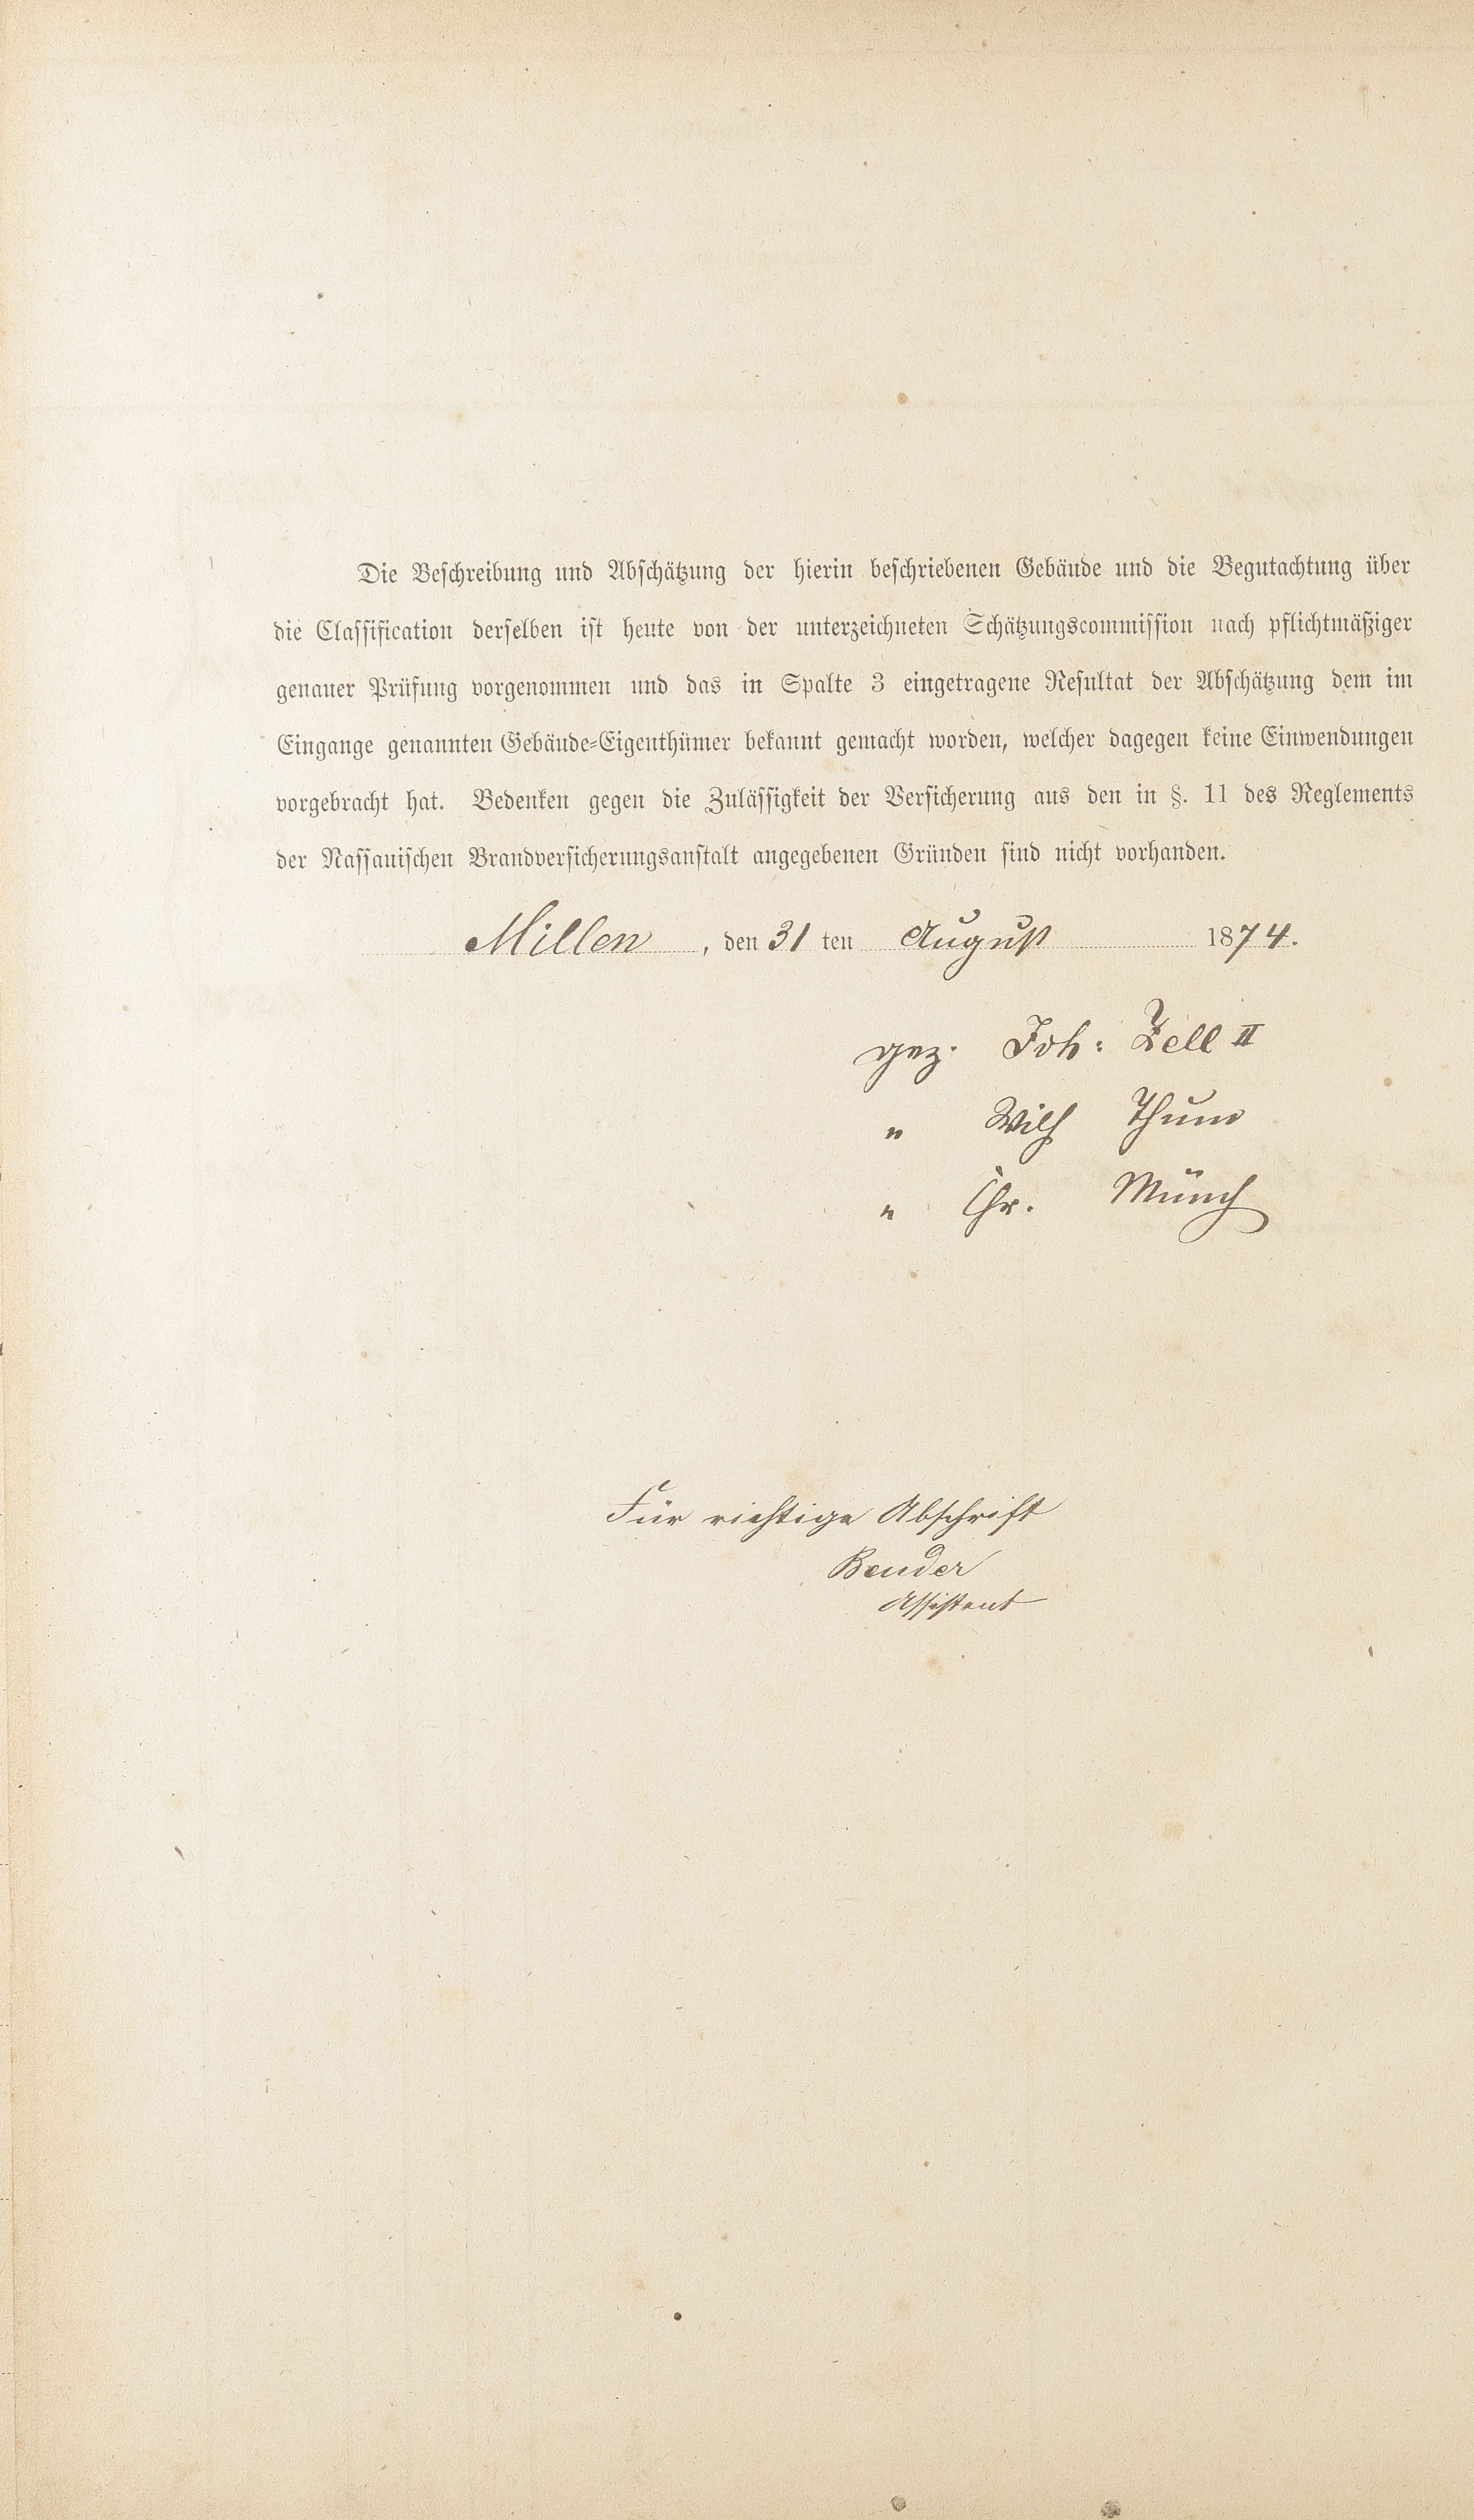 Die Beschreibung und Abschätzung der hierin beschriebenen Gebäude und die Begutachtung über
die Classification derselben ist heute von der unterzeichneten Schätzungscommission nach pflichtmäßiger
genauer Prüfung vorgenommen und das in Spalte 3 eingetragene Resultat der Abschätzung dem im
Eingange genannten Gebäude-Eigenthümer bekannt gemacht worden, welcher dagegen keine Einwendungen
vorgebracht hat. Bedenken gegen die Zulässigkeit der Versicherung aus den in §. 11 des Reglements
der Nassauischen Brandversicherungsanstalt angegebenen Gründen sind nicht vorhanden.
Millen, den 31 ten August 1874.
gez. Joh: Zell II
" Wilh Thum
" Chr. Münch
Für richtige Abschrift
Bender
Assistent